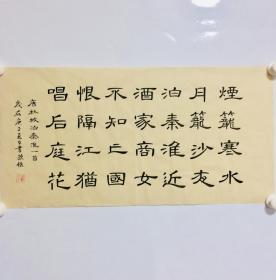 煙籠寒水
月籠沙夜
泊秦淮近
酒家商女
不知亡國
恨隔江猶
唱后庭花
唐杜牧泊秦淮一首